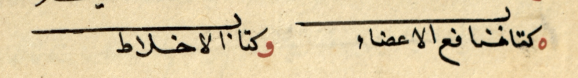 ه كتاب منافع الاعضاء وكتاب الاخلاط